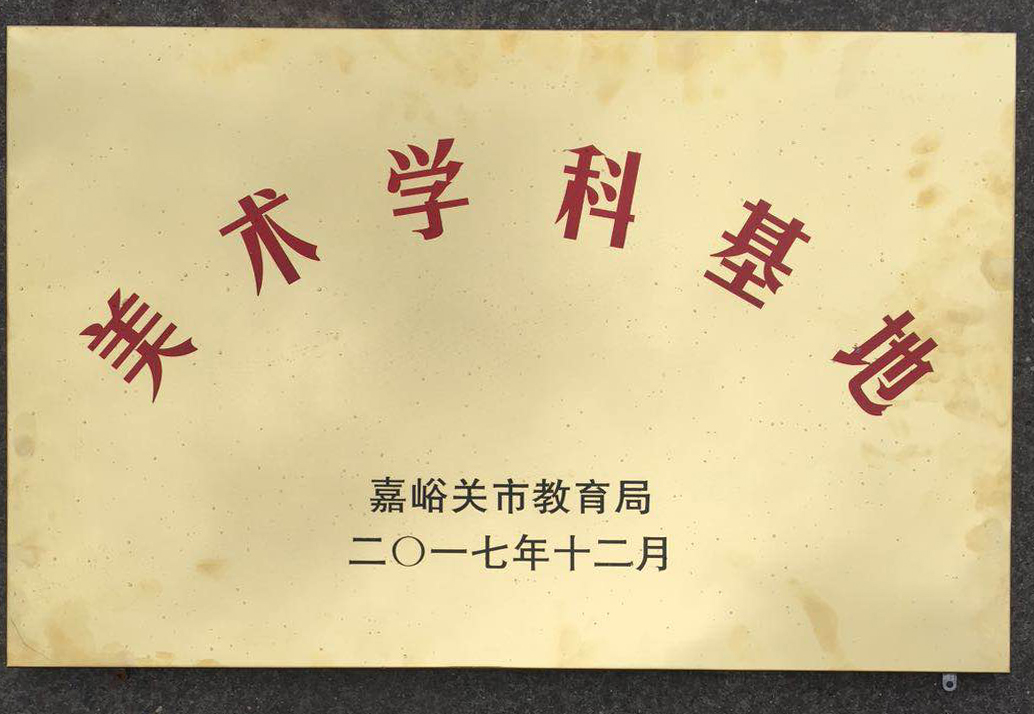 美术学科基地
嘉峪关市教育局
二〇一七年十二月